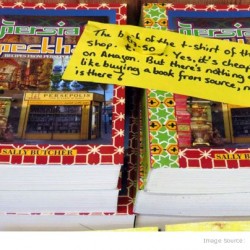 Persia
Peckham
RECIPES FROM PERSEPOLIS
PERSEPOLIS
SALLY BUTCHER
The book of the t-shirt of the
shop. Yes, it's cheaper
on Amazon. But there's nothing
like buying a book from source, n
is there?
SALLY BUTCHER
Image source: